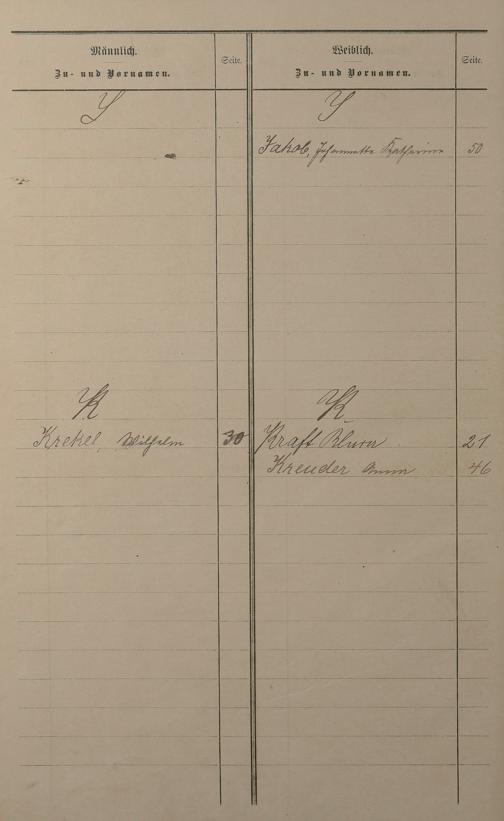 Männlich.
Zu- und Vornamen.
Seite.
J
K
Krekel, Wilhelm 30
Weiblich.
Zu- und Vornamen.
Seite.
J
Jakob, Johannette Katharina 50
K
Kraft 21
Kreuder Anna 46